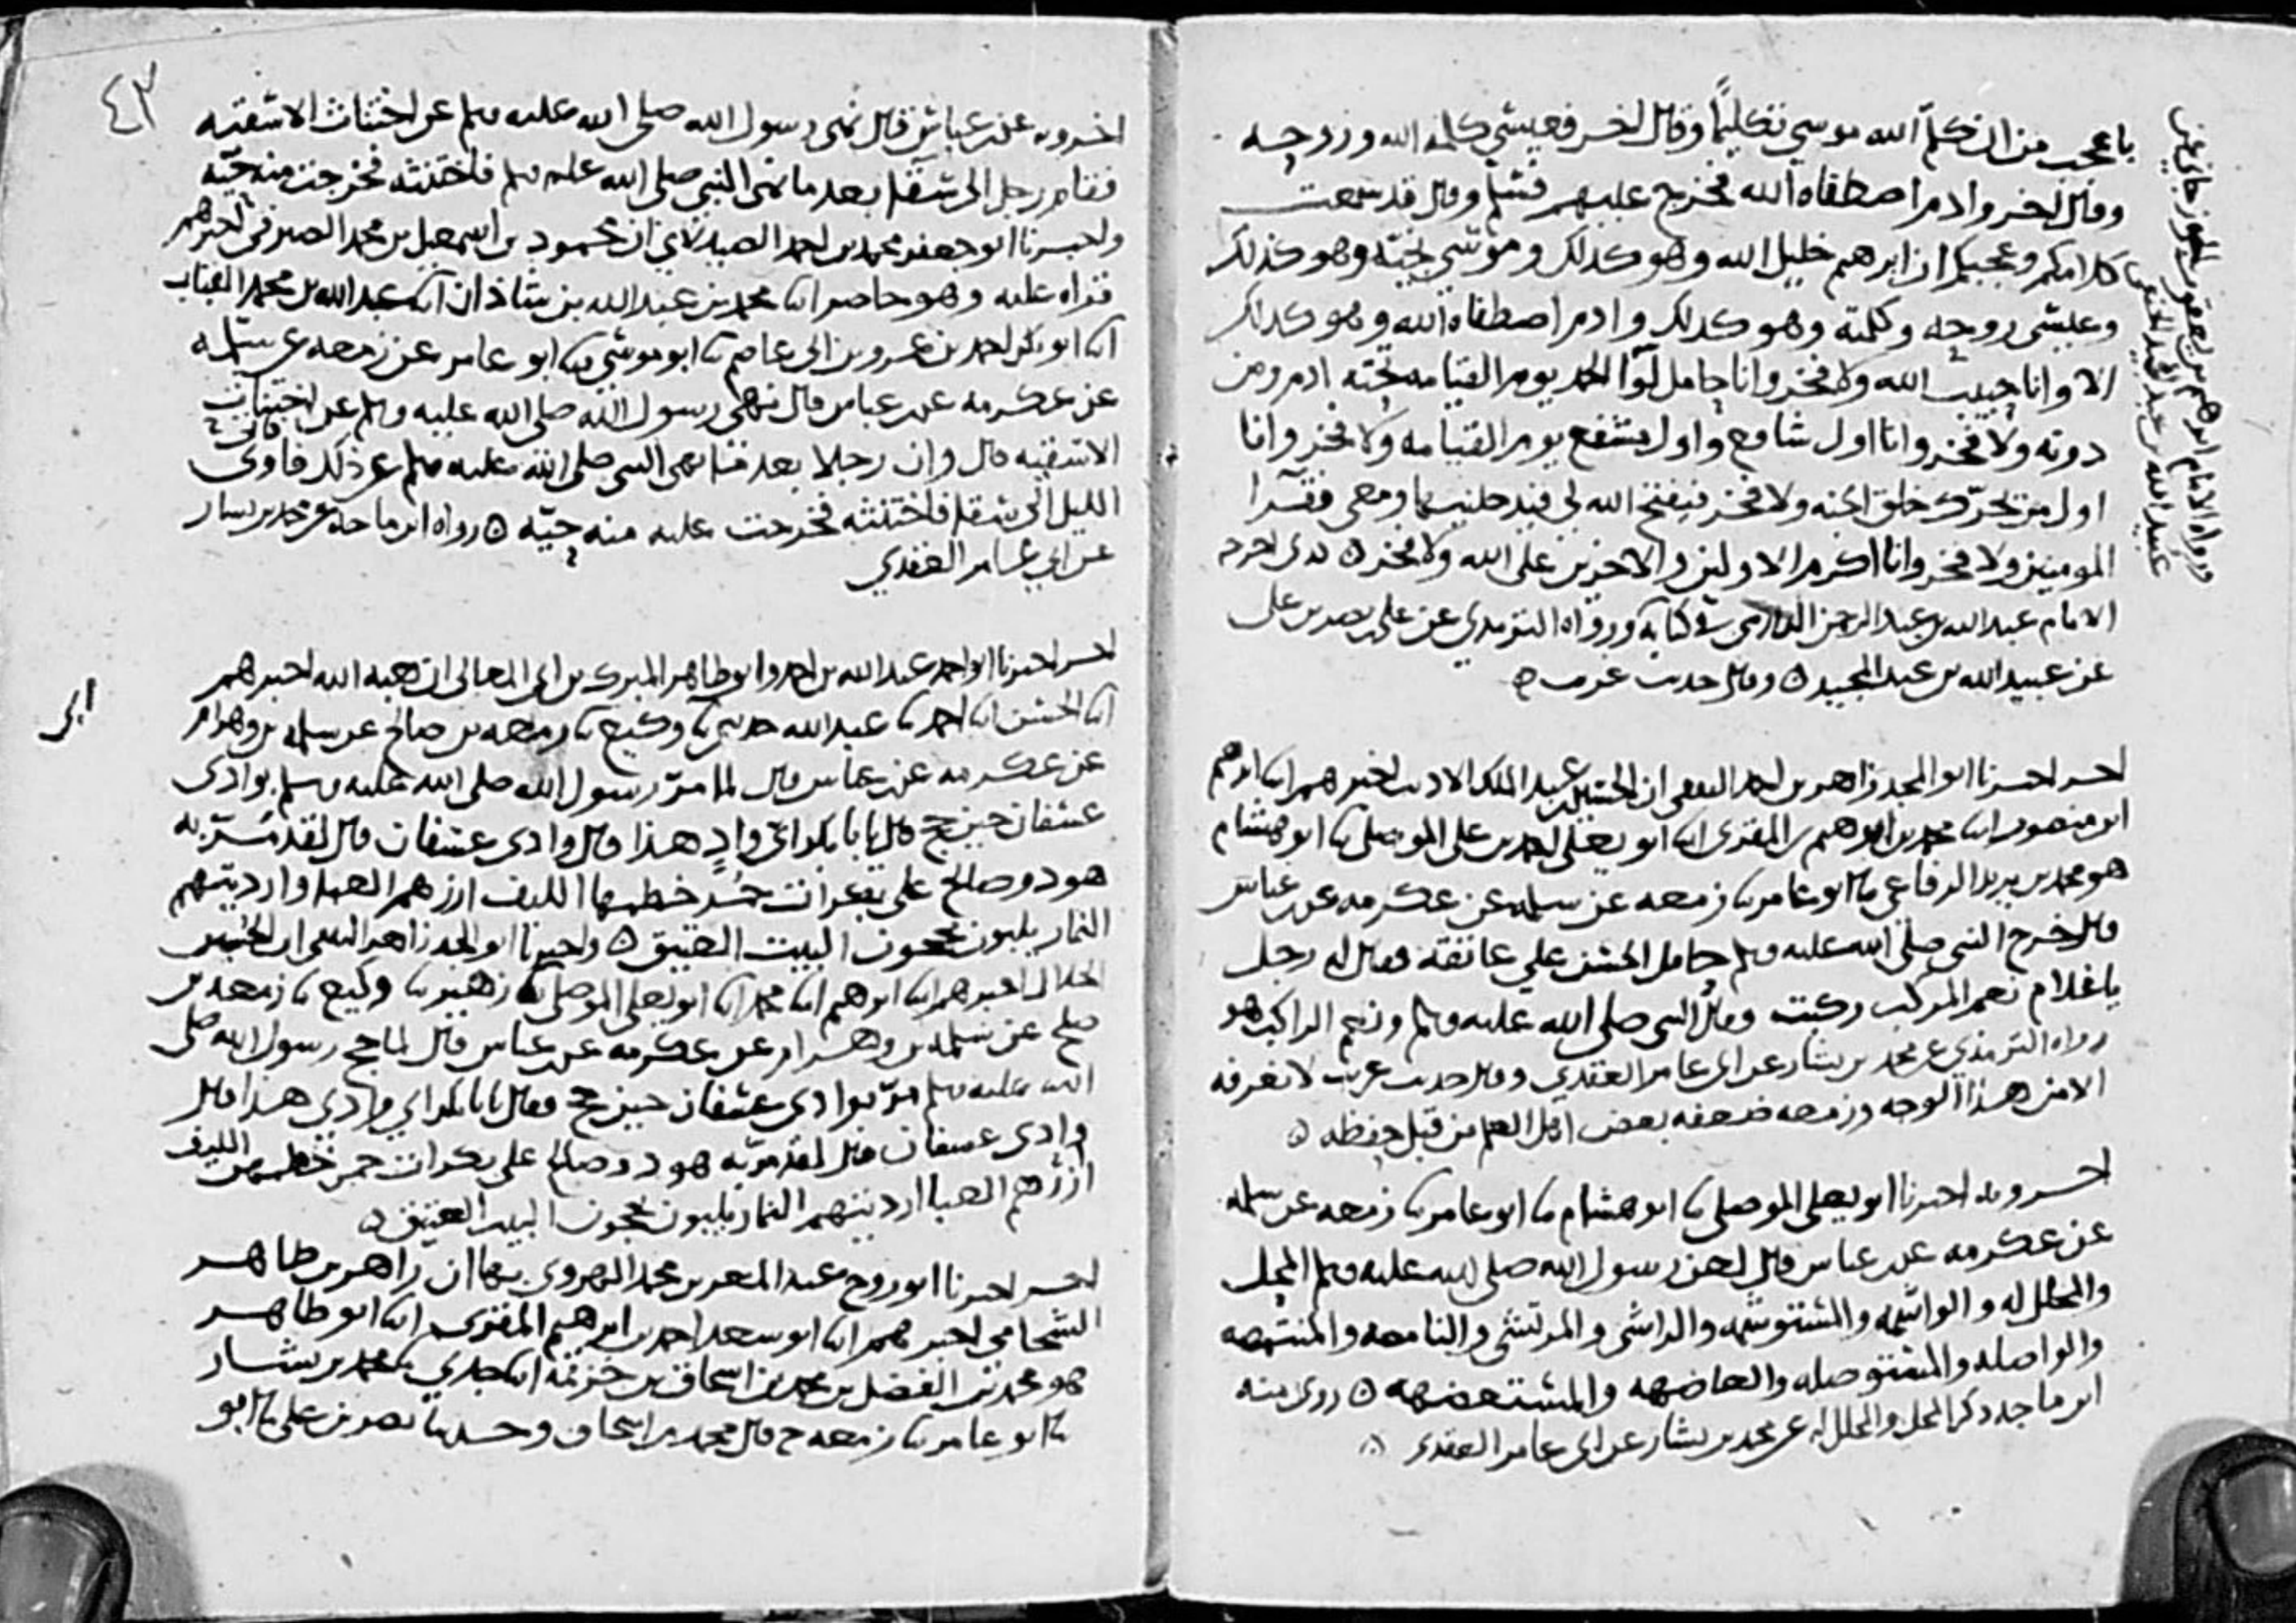 باعجب من ان كلم الله موسى تكليما وقال اخر فعيسى كلمة الله وروحه
وقال اخر وادم اصطفاه الله فخرج عليهم فسلم وقال قد سمعت
كلامكم وعجبكم ان ابرهيم خليل الله وهو كذلك وموسى نجيه وهو كذلك
وعيسى روحه وكلمته وهو كذلك وادم اصطفاه الله وهو كذلك
الا وانا حبيب الله ولا فخر وانا حامل لوا الحمد يوم القيامه تحته ادم ومن
دونه ولا فخر وانا اول شافع واول مشفع يوم القيامه ولا فخر وانا
اول من يحرك حلق الجنه ولا فخر فيفتح الله لي فيدخلنيها ومعي فقرا
المومنين ولا فخر وانا اكرم الاولين والاخرين على الله ولا فخر ه كذى اخرجه
الامام عبد الله بن عبد الرحمن الدارمي في كتابه ورواه الترمذي عن علي بن نصر بن علي
عن عبيد الله بن عبد المجيد ه وقال حديث غريب ه
ورواه الامام ابرهيم بن يعقوب الجوزجاني عن
عبيد الله بن عبد المجيد الحنفي
اخر اخبرنا ابو المجد زاهر بن احمد الثقفي ان الحسين بن عبد الملك الاديب اخبرهم ابنا ابرهيم
ابن منصور ابنا محمد بن ابرهيم بن المقرى ابنا ابو يعلى احمد بن علي الموصلي ثنا ابو هشام
هو محمد بن يزيد الرفاعي ثنا ابو عامر ثنا زمعه عن سلمه عن عكرمه عن ابن عباس
قال خرج النبي صلى الله عليه وسلم حامل الحسن على عاتقه فقال له رجل
يا غلام نعم المركب ركبت وقال النبي صلى الله عليه وسلم ونعم الراكب هو
رواه الترمذي عن محمد بن بشار عن ابي عامر العقدي وقال حديث غريب لا نعرفه
الا من هذا الوجه وزمعه ضعفه بعض اهل العلم من قبل حفظه ه
اخر وبه اخبرنا ابو يعلى الموصلي ثنا ابو هشام ثنا ابو عامر ثنا زمعه عن سلمه
عن عكرمه عن ابن عباس قال لعن رسول الله صلى الله عليه وسلم المحل
والمحلل له والواشمه والمستوشمه والراشي والمرتشي والنامصه والمنتمصه
والواصله والمستوصله والعاضهه والمستعضهه ه روى منه
ابن ماجه ذكر المحل والمحلل له عن محمد بن بشار عن ابي عامر العقدي ه
٤٣
اخر وبه عن ابن عباس قال نهى رسول الله صلى الله عليه وسلم عن اختناث الاسقيه
فقام رجل الى سقا بعد ما نهى النبي صلى الله عليه وسلم فاختنثه فخرجت منه حيه
واخبرنا ابو جعفر محمد بن احمد الصيدلاني ان محمود بن اسمعيل بن محمد الصيرفي اخبرهم
قراه عليه وهو حاضر ابنا محمد بن عبد الله بن شاذان ابنا عبد الله بن محمد القباب
ابنا ابو بكر احمد بن عمرو بن ابي عاصم ثنا ابو موسى ثنا ابو عامر عن زمعه عن سلمه
عن عكرمه عن ابن عباس قال نهى رسول الله صلى الله عليه وسلم عن اختناث
الاسقيه قال وان رجلا بعد ما نهى النبي صلى الله عليه وسلم عن ذلك قام من
الليل الى سقا فاختنثه فخرجت عليه منه حيه ه رواه ابن ماجه عن محمد بن بشار
عن ابي عامر العقدي
اخر اخبرنا ابو احمد عبد الله بن احمد وابو طاهر المبرك بن ابي المعالي ان هبه الله اخبرهم
ابنا الحسن ابنا احمد ثنا عبد الله حدثني ابي ثنا وكيع ثنا زمعه بن صالح عن سلمه بن وهرام
عن عكرمه عن ابن عباس قال لما مر رسول الله صلى الله عليه وسلم بوادى
عسفان حين حج قال يابا بكر اي واد هذا قال وادى عسفان قال لقد مر به
هود وصالح على بكرات حمر خطمها الليف ازرهم العبا وارديتهم
النمار يلبون يحجون البيت العتيق ه واخبرنا ابو المجد زاهر الثقفي ان الحسين
الخلال اخبرهم ابنا ابرهيم ابنا محمد ابنا ابو يعلى الموصلي ثنا زهير ثنا وكيع ثنا زمعه بن
صلح عن سلمه بن وهرام عن عكرمه عن ابن عباس قال لما حج رسول الله صلى
الله عليه وسلم مر بوادى عسفان حين حج فقال يابا بكر اي وادى هذا قال
وادى عسفان قال لقد مر به هود وصالح على بكرات حمر خطمهن الليف
ازرهم العبا ارديتهم النمار يلبون يحجون البيت العتيق ه
اخر اخبرنا ابو روح عبد المعز بن محمد الهروي بها ان زاهر بن طاهر
الشحامي اخبرهم ابنا ابو سعد احمد بن ابرهيم المقرى ابنا ابو طاهر
هو محمد بن الفضل بن محمد بن اسحاق بن خزيمه ابنا جدي ثنا محمد بن بشار
ثنا ابو عامر ثنا زمعه ح قال محمد بن اسحاق وحدثنا نصر بن علي ثنا ابو